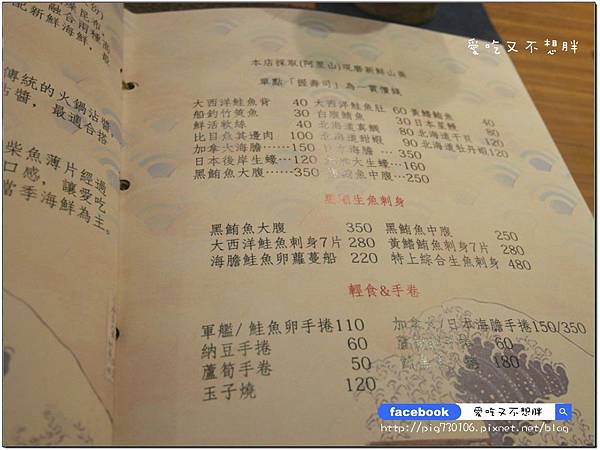 愛吃又不想胖
本店採取(阿里山)現磨新鮮山葵
單點「握壽司」為一貫價錢
大西洋鮭魚背 40 大西洋鮭魚肚 60 黃鰭鮪魚 40
船釣竹筴魚 30 白旗魚 30 日本星鰻 80
鮮活軟絲 40 北海道真鯛 80 北海道干貝 120
比目魚其邊肉 100 北海道甜蝦 90 北海道牡丹蝦120
加拿大海膽……150 日本海膽 …350
日本後岸生蠔…120 大生蠔…160
黑鮪魚大腹……350 魚中腹…250
生魚刺身
黑鮪魚大腹 350 黑鮪魚中腹 250
大西洋鮭魚刺身7片 280 黃鰭鮪魚刺身7片 280
海膽鮭魚卵蘿蔓船 220 特上綜合生魚刺身 480
輕食&手卷
軍艦/鮭魚卵手捲110 加拿大/日本海膽手捲150/350
納豆手捲 60 60
蘆筍手卷 50 180
玉子燒 120
傳統的火鍋沾醬,
沾醬,最適合搭
柴魚薄片經過
口感,讓愛吃
當季海鮮為主。
配新鮮海鮮,
facebook 愛吃又不想胖
http://pig730106.pixnet.net/blog